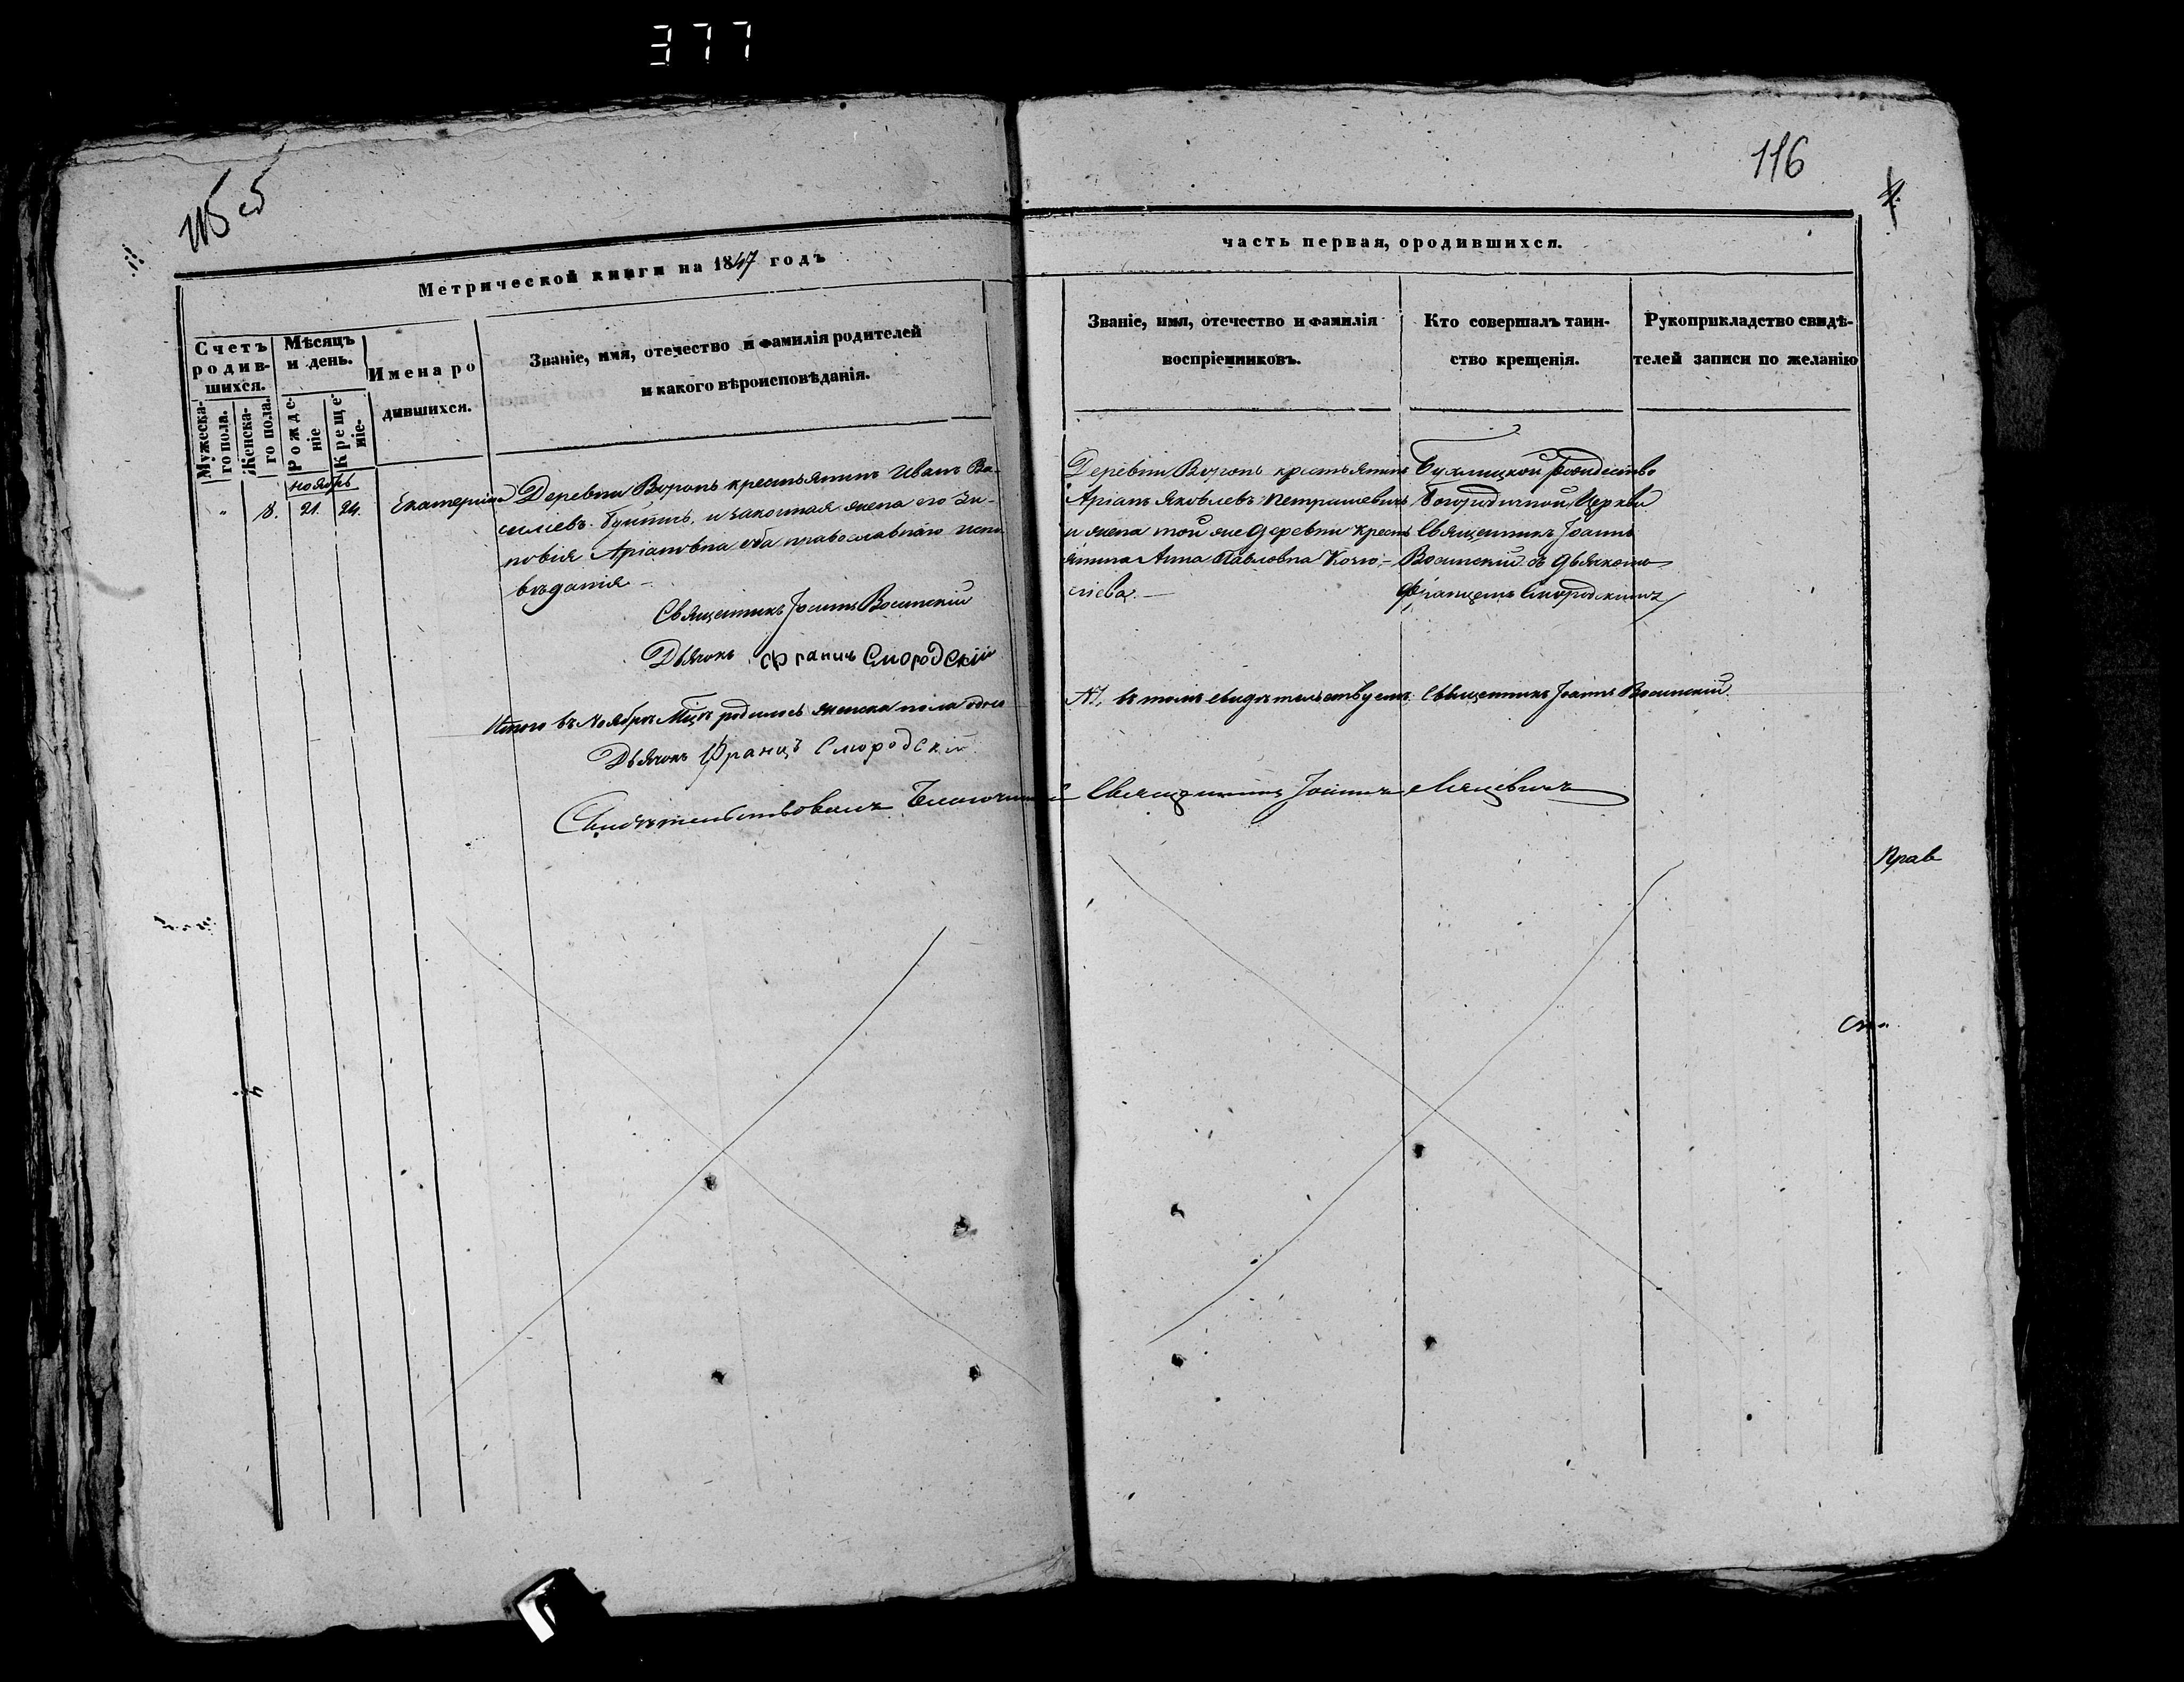 377
115 об
116
4.
Метрической книги на 1847 годъ
часть первая, ородившихся.
Счетъ родив-шихся.
Мужеска-го пола.
Женска-го пола.
Мѣсяцъ и день.
Рожде-ніе
Креще-ніе.
Имена ро
дившихся.
Званіе, имя, отечество и фамилія родителей
и какого вѣроисповѣданія.
Званіе, имя, отечество и фамилія
воспріемниковъ.
Кто совершалъ таин-
ство крещенія.
Рукоприкладство свидѣ-
телей записи по желанію
ноябрь
" 8. 21. 24.
Екатерина
Деревни Воронь крестьянинъ Иванъ Ва-
силіевъ и законная жена его Зи-
новія Аріановна оба православнаго испо
вѣданія
Священникъ Іоаннъ Восинскій
Дьячокъ Францъ Смородскій
Деревни Воронь крестьянинъ
Аріанъ Яковлевъ Петрашевичъ
и жена той же деревни крестья
янина Анна Павловна
Рождество
Богородичной Церкви
Священникъ Іоаннъ
Восинскій съ дьячкомъ
Францемъ Смородскимъ
Итого въ Ноябрѣ Мцѣ родилось женска пола одна
№1, въ томъ свидѣтельствуемъ: Священникъ Іоаннъ Восинскій.
Дьячокъ Францъ Смородскій
Свидѣтельствовалъ Благочинный Священникъ Іоаннъ
Прав